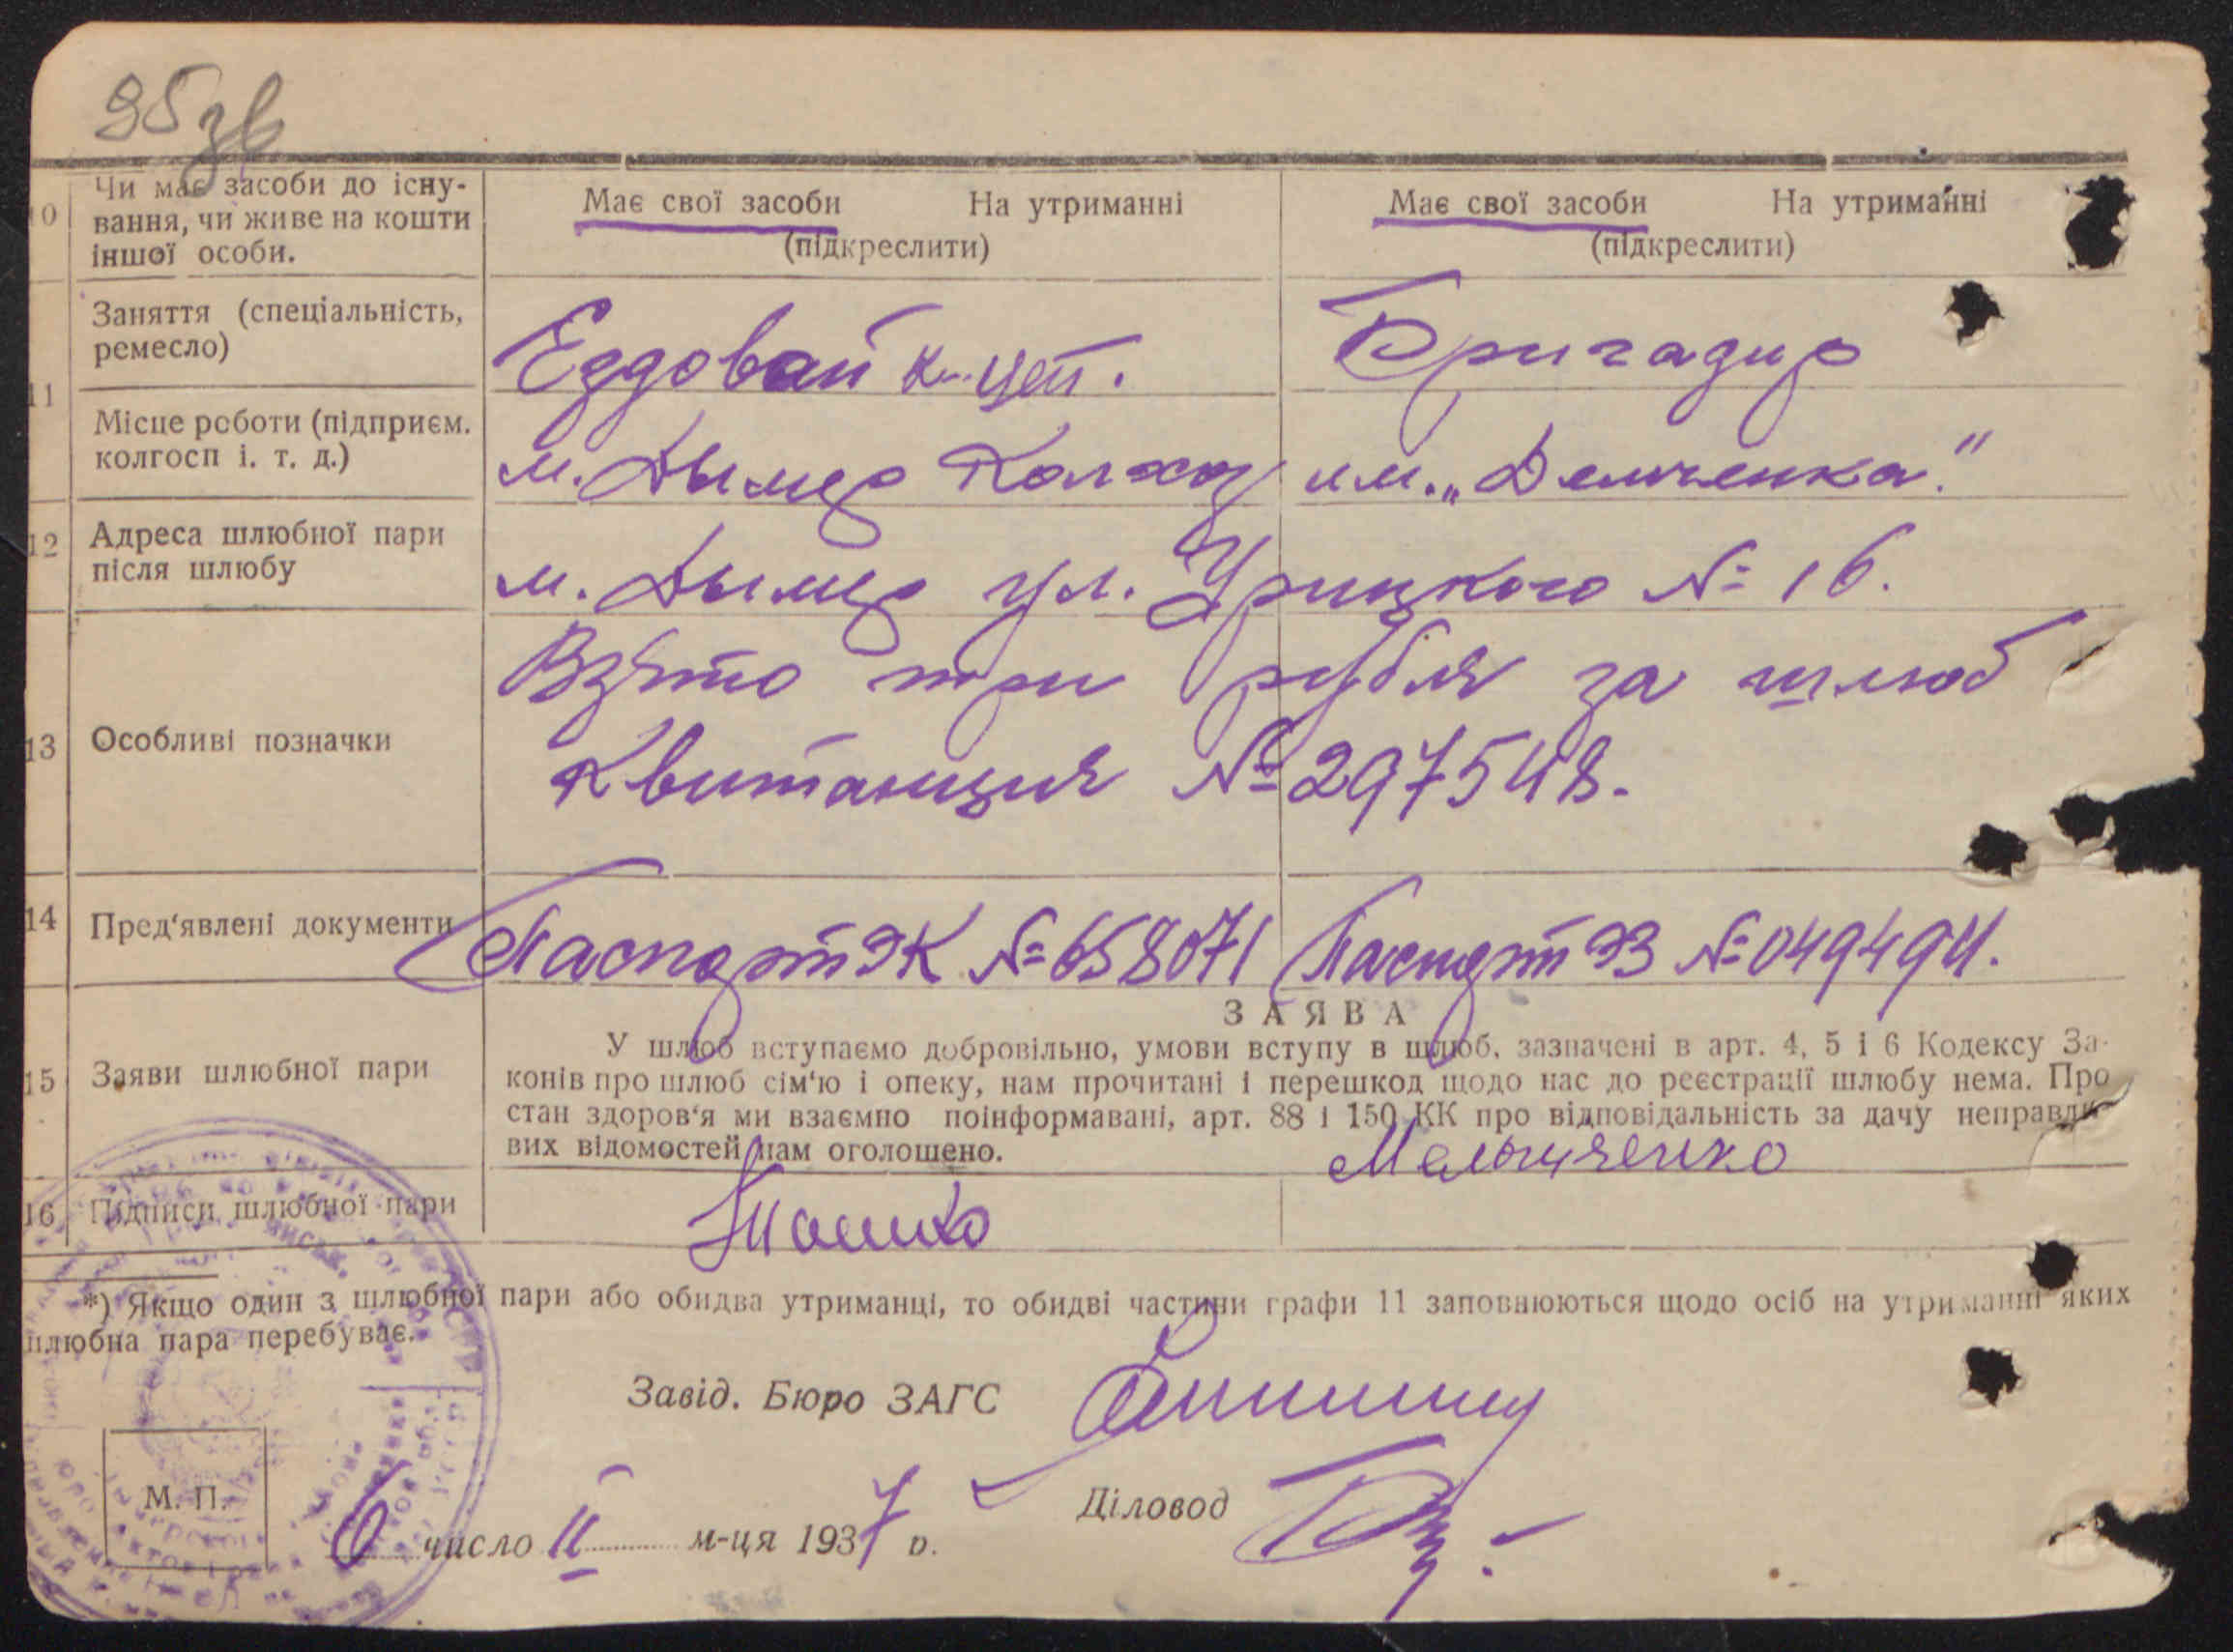 95 зв
10 Чи має засоби до існу-
вання, чи живе на кошти
іншої особи.
Має свої засоби На утриманні
(підкреслити)
Має свої засоби На утриманні
(підкреслити)
11 Заняття (спеціальність,
ремесло)
Ездовай
Бригадир
Місце роботи (підприєм.
колгосп і. т. д.)
м. Дымер Колхоз им. „Демченка."
12 Адреса шлюбної пари
після шлюбу
м. Дымер ул. Урицкого № 16.
13 Особливі позначки
Взято три рубля за шлюб
Квитанция № 297548.
14 Пред'явлені документи
Паспорт ЭК № 658071
Паспорт ЭЗ № 049494.
15 Заяви шлюбної пари
ЗАЯВА
У шлюб вступаємо добровільно, умови вступу в шлюб, зазначені в арт. 4, 5 і 6 Кодексу За-
конів про шлюб сім'ю і опеку, нам прочитані і перешкод щодо нас до реєстрації шлюбу нема. Про
стан здоров'я ми взаємно поінформавані, арт. 88 і 150 КК про відповідальність за дачу неправди-
вих відомостей нам оголошено.
16 Підписи шлюбної пари
Мельниченко
*) Якщо один з шлюбної пари або обидва утриманці, то обидві частини графи 11 заповнюються щодо осіб на утриманні яких
шлюбна пара перебуває.
Завід. Бюро ЗАГС
М. П.
Діловод
6 число II м-ця 1937 р.